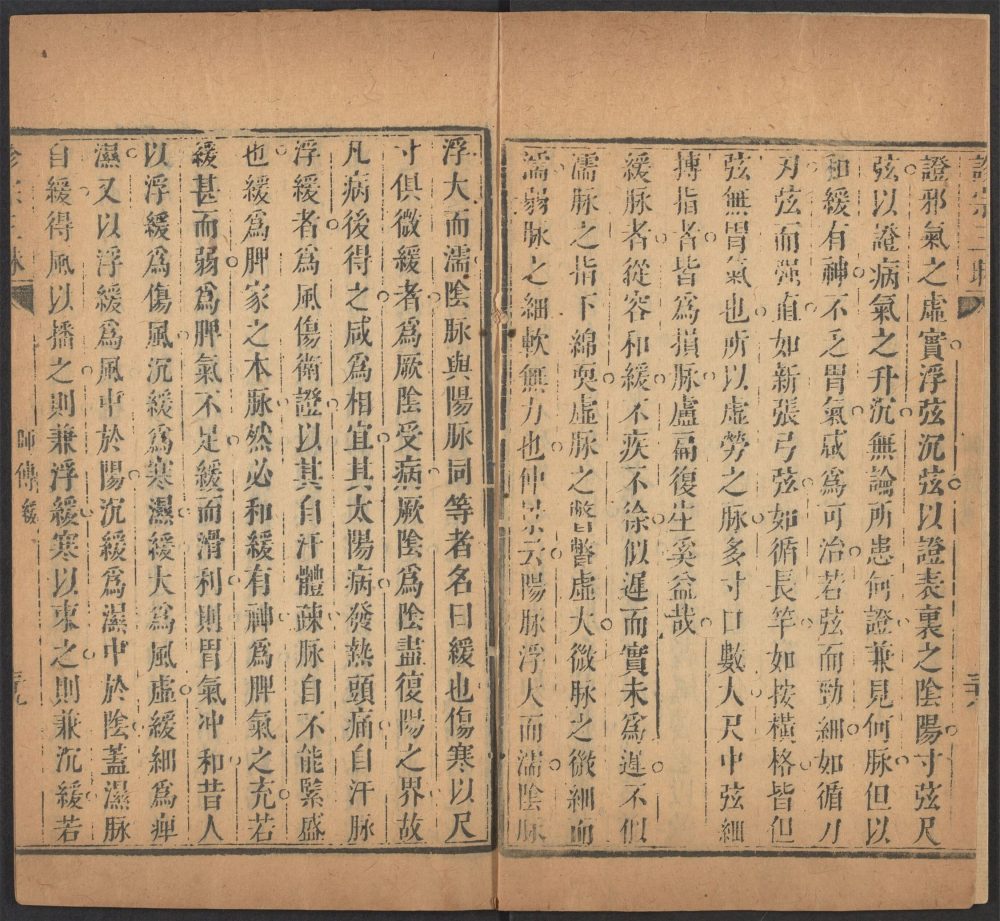 診宗三昧
證邪氣之虛實浮弦沉弦以證表裏之陰陽寸弦尺
弦以證病氣之升沉無論所患何證兼見何脉但以
和緩有神不乏胃氣咸爲可治若弦而勁細如循刀
刃弦而强直如新張弓弦如循長竿如按橫格皆但
弦無胃氣也所以虛勞之脉多寸口數大尺中弦細
搏指者皆爲損脉盧扁復生奚益哉
緩脉者從容和緩不疾不徐似遲而實未爲遲不似
濡脉之指下綿耎虛脉之瞥瞥虛大微脉之微細而
濡弱脉之細軟無力也仲景云陽脉浮大而濡陰脉
浮大而濡陰脉與陽脉同等者名曰緩也傷寒以尺
寸俱微緩者爲厥陰受病厥陰爲陰盡復陽之界故
凡病後得之咸爲相宜其太陽病發熱頭痛自汗脉
浮緩者爲風傷衛證以其自汗體疎脉自不能緊盛
也緩爲脾家之本脉然必和緩有神爲脾氣之充若
緩甚而弱爲脾氣不足緩而滑利則胃氣冲和昔人
以浮緩爲傷風沉緩爲寒濕緩大爲風虛緩細爲痺
濕又以浮緩爲風中於陽沉緩爲濕中於陰蓋濕脉
自緩得風以播之則兼浮緩寒以束之則兼沉緩若
師傳 緩